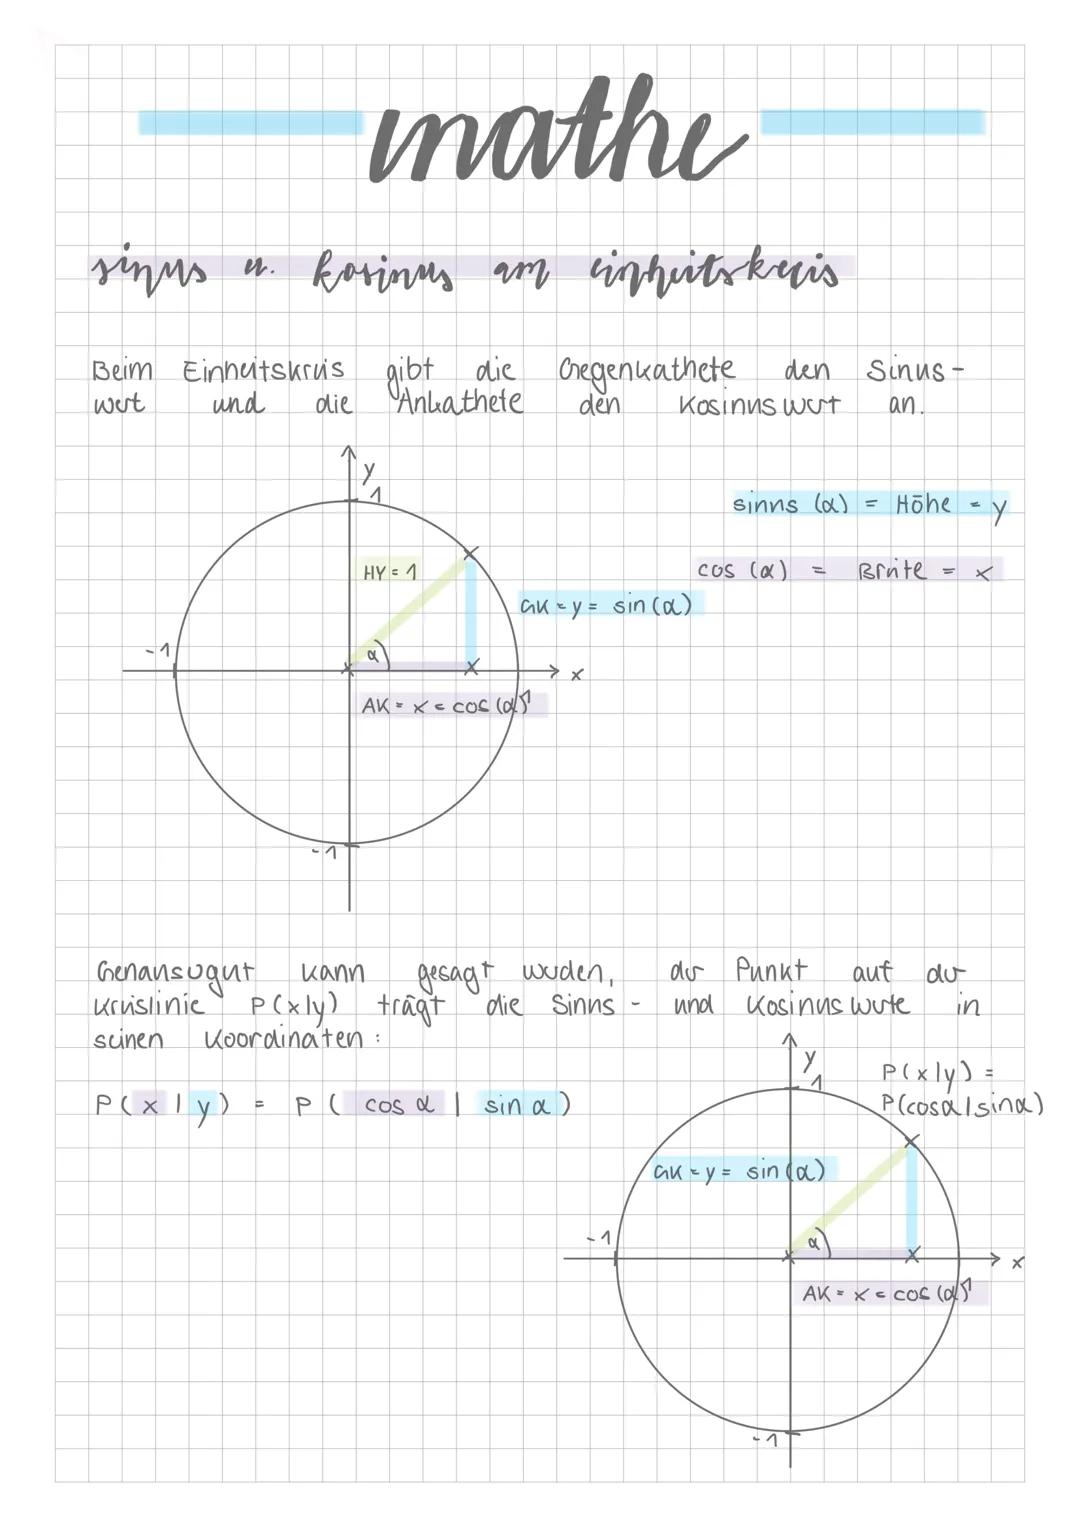 mathe
sinus u. kosinus am einheitskreis
Beim Einheitskreis gibt die Gegenkathete den Sinus-
wert und die Ankathete den Kosinuswert an.
y
1
sinus (α) = Höhe = y
HY = 1
cos (α) = Breite = x
GK = y = sin (α)
-1
α
x
AK = x = cos (α)
1
-1
Genausogut kann gesagt werden, der Punkt auf der
Kreislinie P(x|y) trägt die Sinus- und Kosinuswerte in
seinen Koordinaten:
P(x | y) = P ( cos α | sin α )
y
1
P(x|y) =
P(cosα|sinα)
GK = y = sin (α)
-1
α
x
AK = x = cos (α)
1
-1